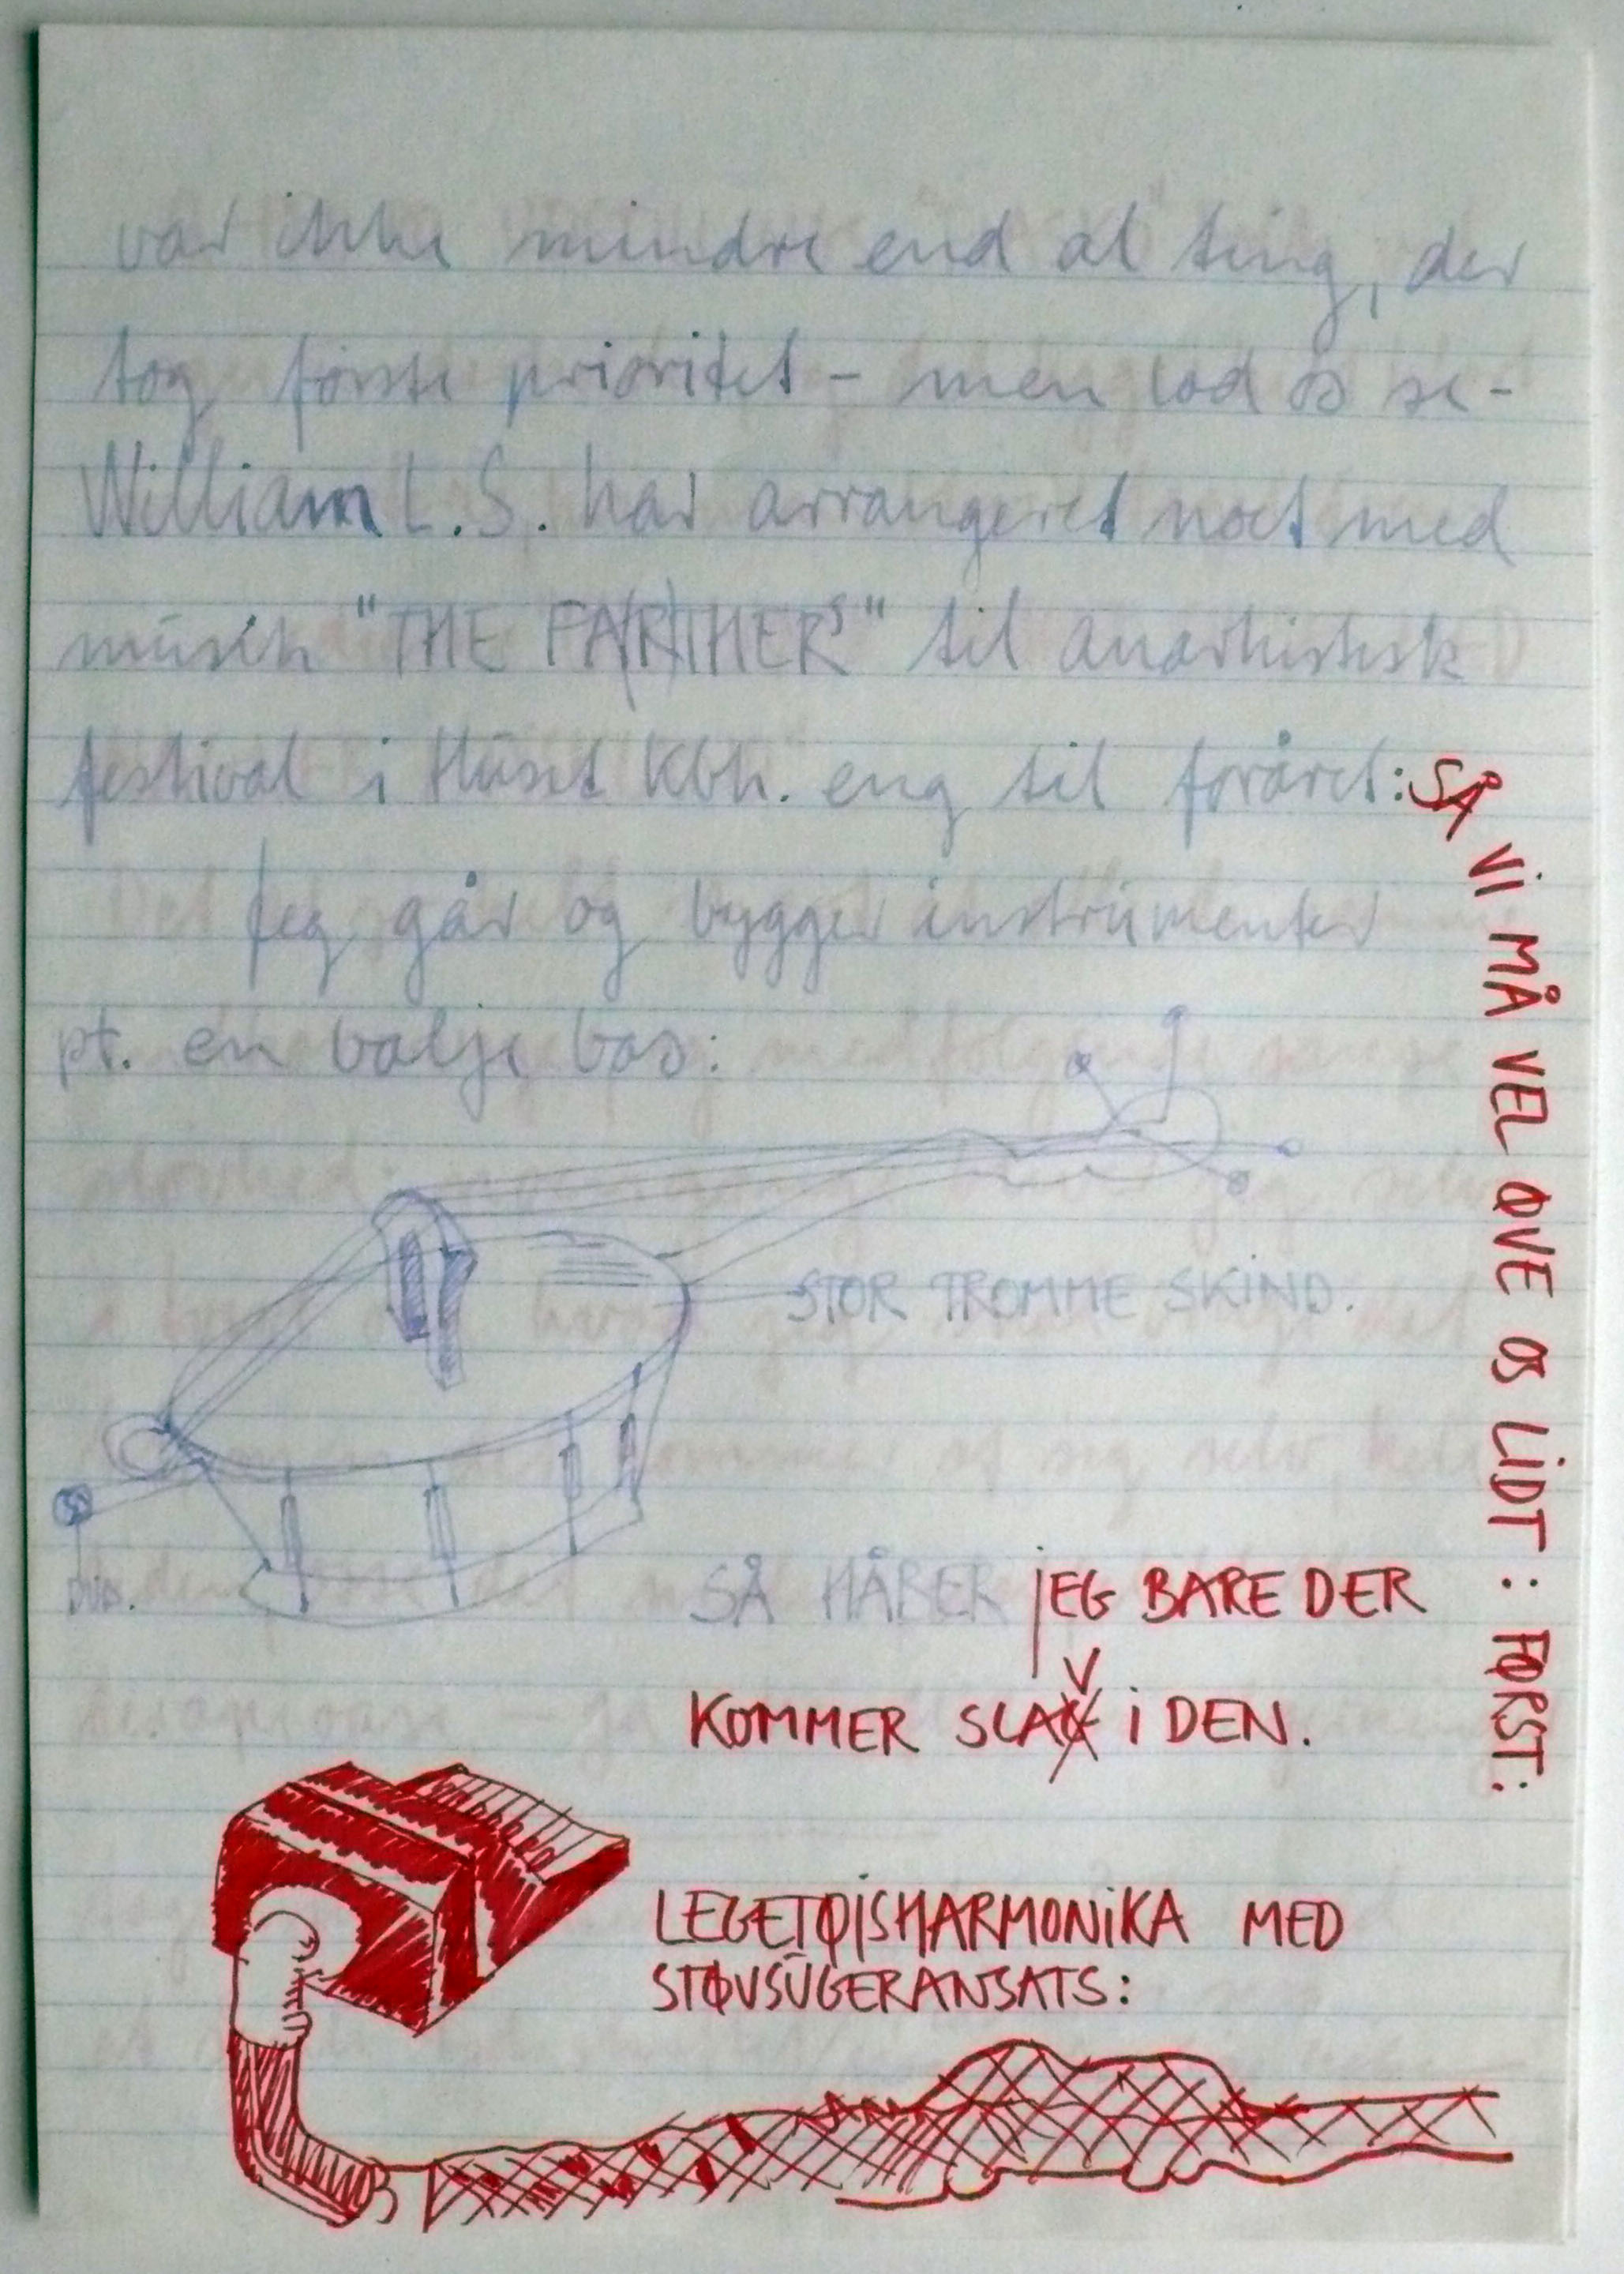 var ikke mindre end al ting, der
tog første prioritet – men lad os se –
William L.S. har arrangeret noet med
musik "THE FA(R)THERS" til anarkistisk
festival i Huset Kbh. eng til foråret:
SÅ VI MÅ VEL ØVE OS LIDT : FØRST:
Jeg går og bygger instrumenter
pt. en balje bas:
STOR TROMME SKIND.
SÅ HÅBER JEG BARE DER
KOMMER SLAV I DEN.
LEGETØJSHARMONIKA MED
STØVSUGERANSATS: